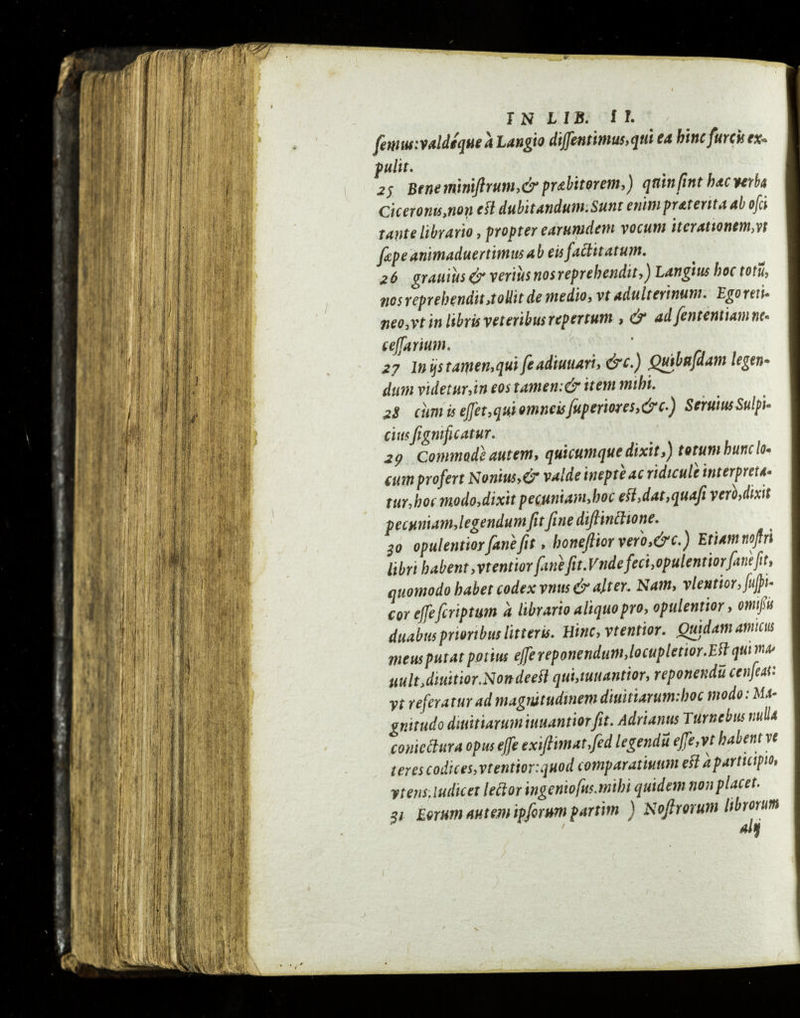 IN LIB. II.
ſemus:valdéque à Langio diſſentimus,qui ea hinc furcis ex-
pulit.
25 Bene miniſtrum,& præbitorem,) quin ſint hæc verba
Ciceronis,non est dubitandum.Sunt enim præterita ab oſci
tante librario, propter earumdem vocum iterationem,vt
ſæpe animaduertimus ab eis factitatum.
26 grauiùs & veriùs nos reprehendit,) Langius hoc totũ,
nos reprehendit,tollit de medio, vt adulterinum. Ego reti-
neo,vt in libris veteribus repertum, & ad ſententiam ne-
ceſſarium.
27 In ijs tamen,qui ſe adiuuari, &c.) Quibuſdam legen-
dum videtur,in eos tamen:& item mihi.
28 cùm is eſſet,qui omneis ſuperiores,&c.) Seruius Sulpi-
cius ſignificatur.
29 Commodè autem, quicumque dixit,) totum hunc lo-
cum profert Nonius,& valde ineptè ac ridiculè interpreta-
tur,hoc modo,dixit pecuniam,hoc est,dat,quaſi verò,dixit
pecuniam,legendum ſit ſine diſtinctione.
30 opulentior ſanè ſit, honeſtior verò,&c.) Etiam noſtri
libri habent,vtentior ſanè ſit.Vnde feci,opulentior ſanè ſit,
quomodo habet codex vnus & alter. Nam, vlentior,ſuſpi-
cor eſſe ſcriptum à librario aliquo pro, opulentior, omißis
duabus prioribus litteris. Hinc, vtentior. Quidam amicus
meus putat potius eſſe reponendum,locupletior.Est qui ma-
uult,diuitior.Non deest qui,iuuantior, reponendũ cenſeat:
vt referatur ad magnitudinem diuitiarum:hoc modo: Ma-
gnitudo diuitiarum iuuantior ſit. Adrianus Turnebus nulla
coniectura opus eſſe exiſtimat,ſed legendũ eſſe,vt habent ve
teres codices,vtentior:quod comparatiuum est à participio,
vtens.Iudicet lector ingenioſus.mihi quidem non placet.
31 Eorum autem ipſorum partim ) Noſtrorum librorum
alij